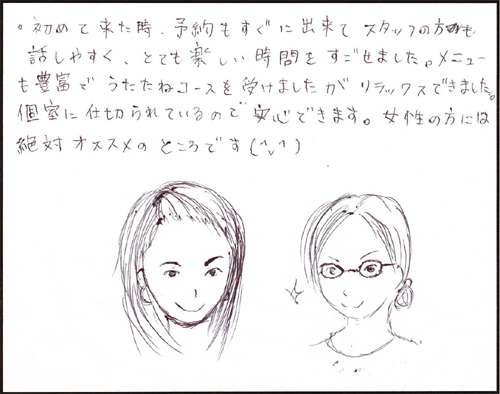 。初めて来た時、予約もすぐに出来て スタッフの方も
話しやすく、とても楽しい時間をすごせました。メニュー
も豊富で うたたねコースを受けましたが リラックスできました。
個室に仕切られているので安心できます。女性の方には
絶対オススメのところです(^v^)